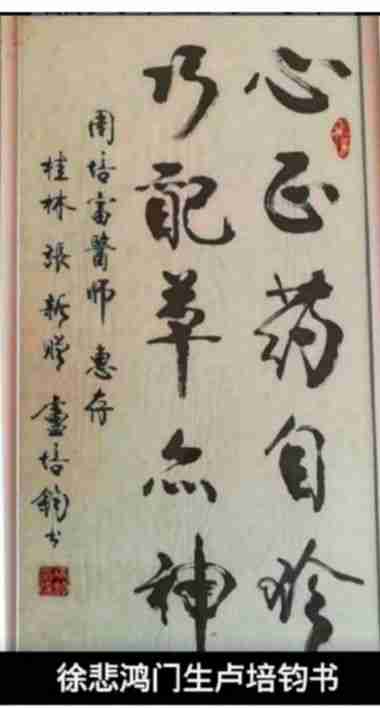 心正药自珍
巧配草亦神
周培富醫師惠存
桂林張新 盧培鈞书
徐悲鸿门生卢培钧书